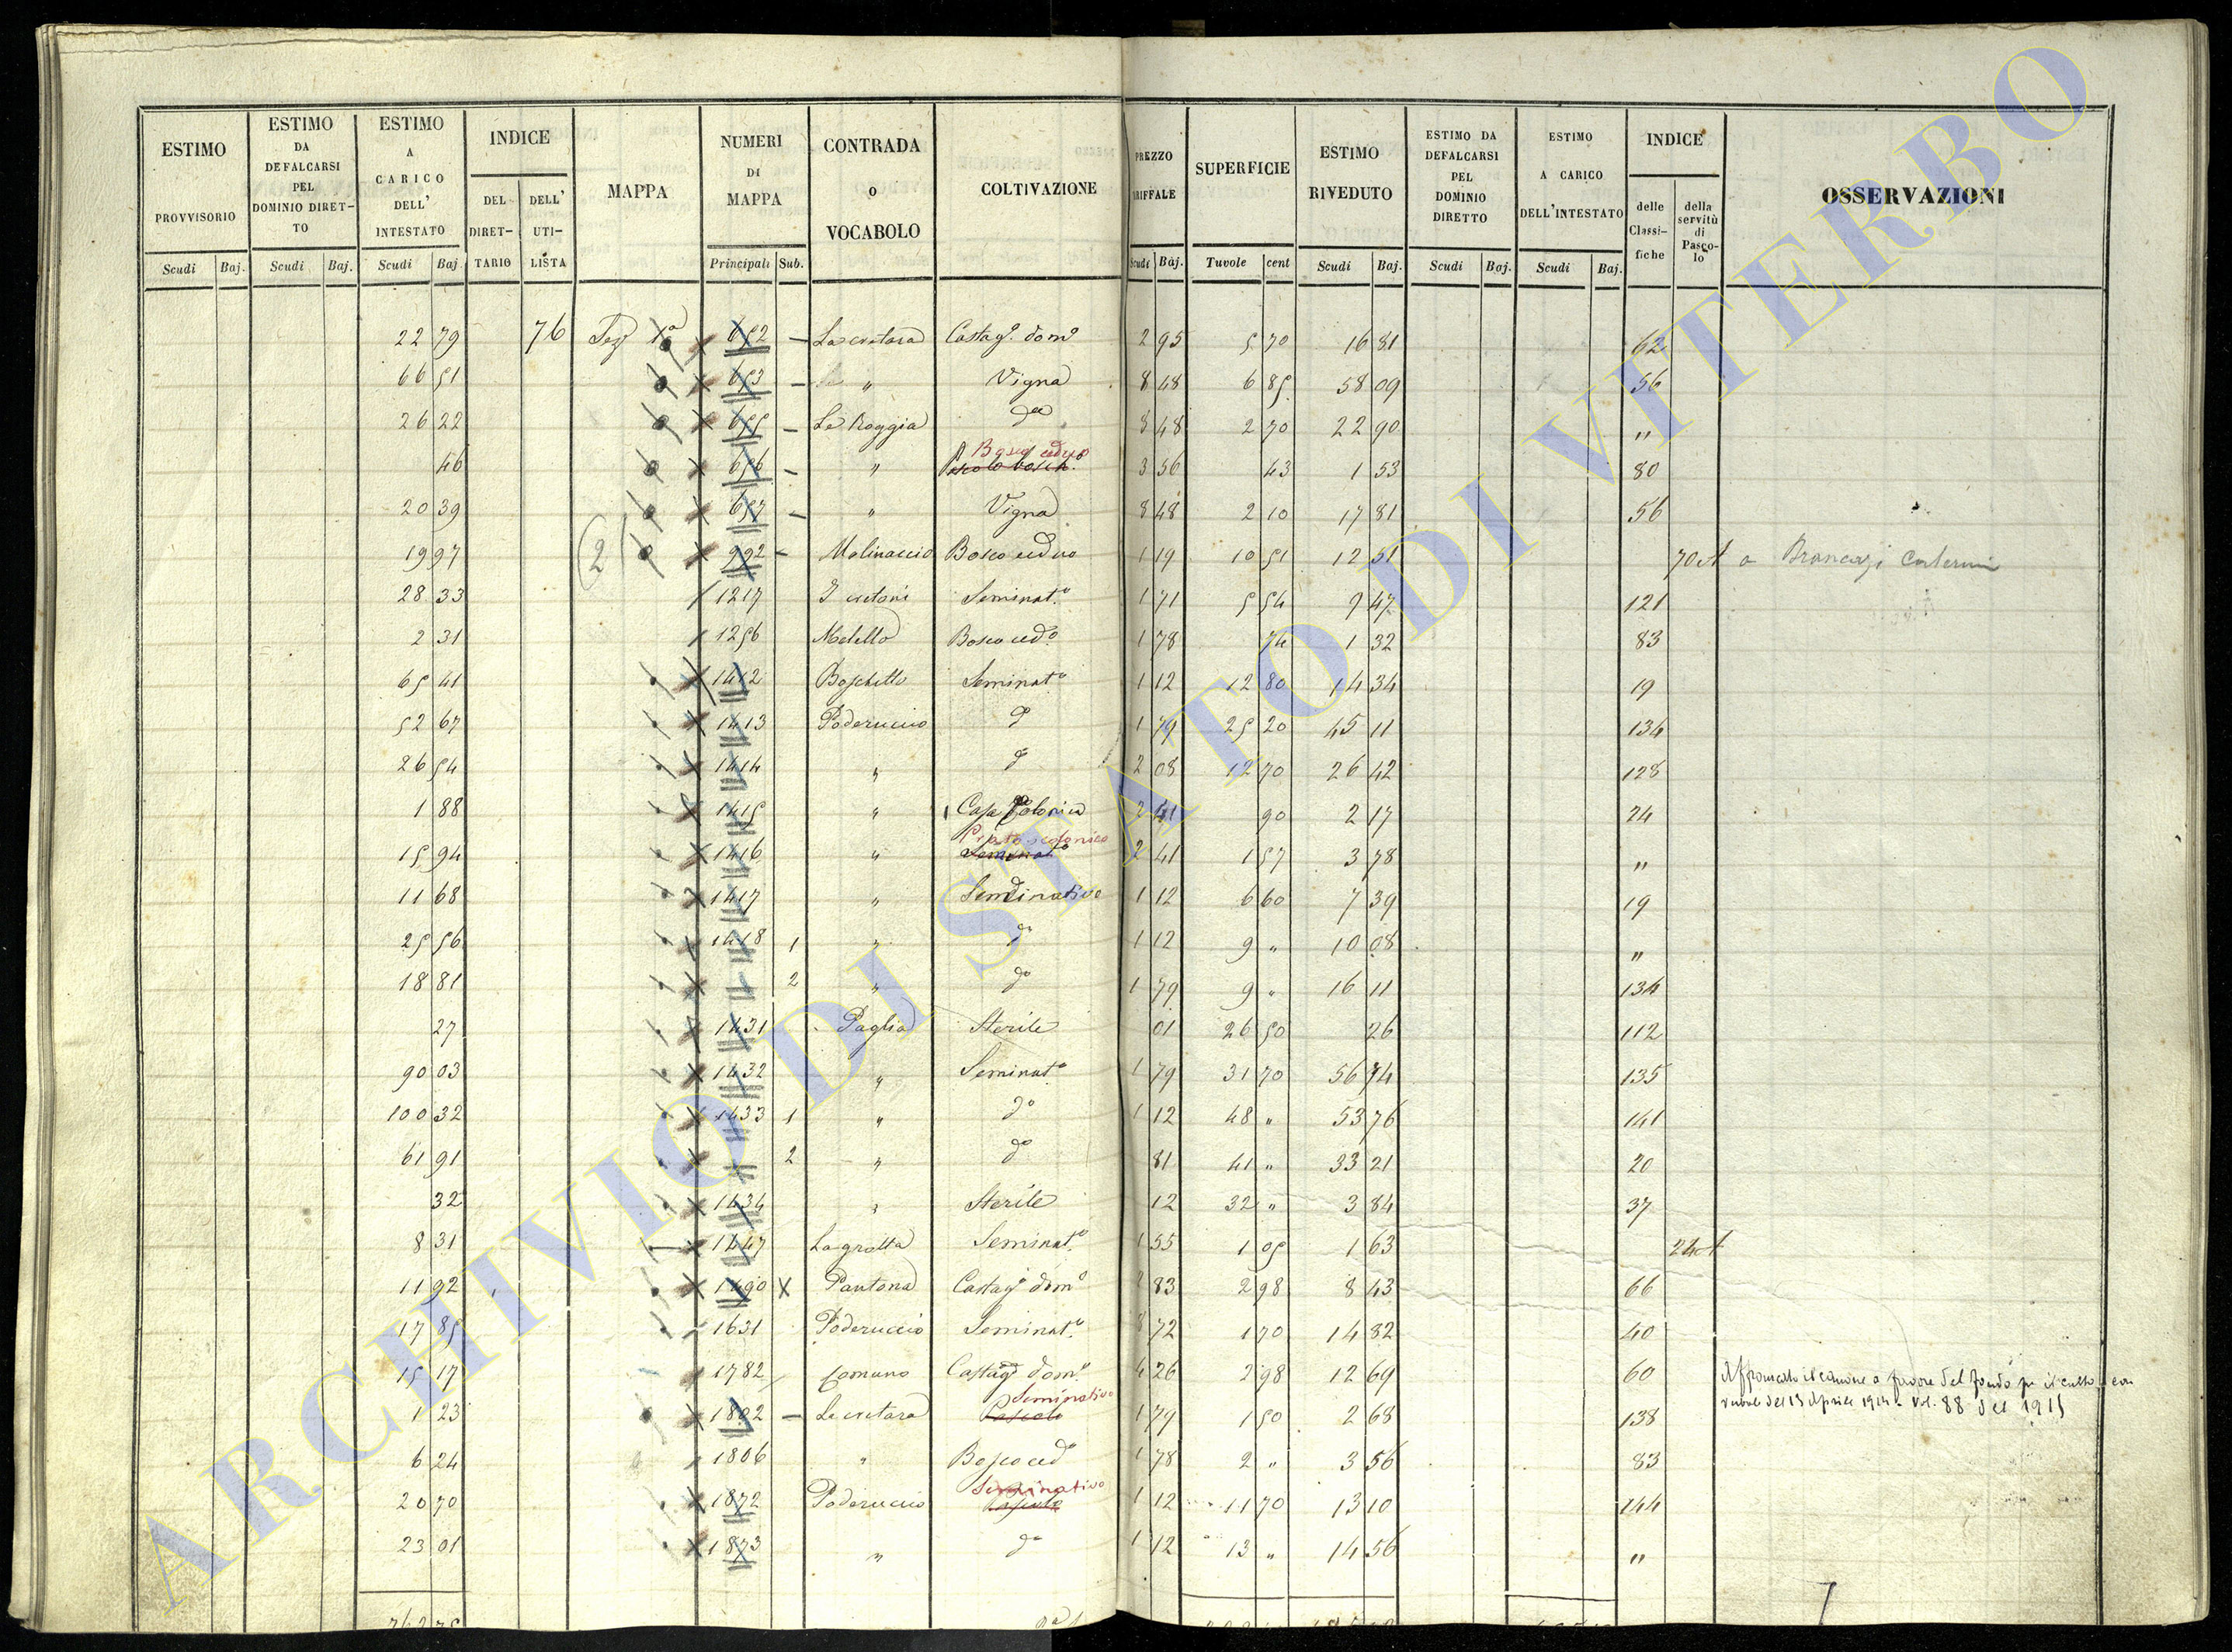 ESTIMO PROVVISORIO Scudi Baj.
ESTIMO DA DEFALCARSI PEL DOMINIO DIRET-TO Scudi Baj.
ESTIMO A CARICO DELL' INTESTATO Scudi Baj.
INDICE DEL DIRET-TARIO DELL' UTI-LISTA
MAPPA
NUMERI DI MAPPA Principali Sub.
CONTRADA o VOCABOLO
COLTIVAZIONE
PREZZO Scudi Baj.
SUPERFICIE Tavole cent
ESTIMO RIVEDUTO Scudi Baj.
ESTIMO DA DEFALCARSI PEL DOMINIO DIRETTO Scudi Baj.
ESTIMO A CARICO DELL'INTESTATO Scudi Baj.
INDICE delle Classi-fiche della servitù di Pasco-lo
OSSERVAZIONI
22 79 76 652 — La cretara Castag.º domº 2 95 5 70 16 81 62
66 51 653 — " Vigna 8 48 6 85 58 09 56
26 22 655 — La Roggia 8 48 2 70 22 90 "
46 656 — " Bosco ceduo 3 56 43 1 53 80
20 39 657 — " Vigna 8 48 2 10 17 81 56
2 19 97 992 — Molinaccio Bosco ceduo 1 19 10 51 12 51 70 a
28 33 1217 I cretoni Seminat.º 1 71 5 54 9 47 121
2 31 1256 Bosco ced.º 1 78 74 1 32 83
65 41 1412 Boschetto Seminat.º 1 12 12 80 14 34 19
52 67 1413 Poderuccio dº 1 79 25 20 45 11 134
26 54 1414 " dº 2 08 12 70 26 42 128
1 88 1415 " Casa Colonica 2 41 90 2 17 24
15 94 1416 " Seminatº 2 41 1 57 3 78 "
11 68 1417 " Seminativo 1 12 6 60 7 39 19
25 56 1418 1 " dº 1 12 9 " 10 08 "
18 81 2 " dº 1 79 9 " 16 11 134
27 1431 Paglia Sterile 01 26 50 26 112
90 03 1432 " Seminat.º 1 79 31 70 56 74 135
100 32 1433 1 " dº 1 12 48 " 53 76 141
61 91 2 " dº 81 41 " 33 21 20
32 1434 " Sterile 12 32 " 3 84 37
8 31 1447 La grotta Seminat.º 1 55 1 05 1 63 24
11 92 1490 X Pantona Castag.º domº 2 83 2 98 8 43 66
17 85 1631 Poderuccio Seminat.º 8 72 1 70 14 82 40
15 17 1782 Comuno Castag.º dom.º 4 26 2 98 12 69 60 Affrancato il canone a favore del fondo per il culto con
verbale del 13 Aprile 1914 - Vol. 88 del 1915
1 23 1802 — La cretara Seminativo Pascolo 1 79 1 50 2 68 138
6 24 1806 " Bosco cedº 1 78 2 " 3 56 83
20 70 1872 Poderuccio Seminativo Pascolo 1 12 11 70 13 10 144
23 01 1873 " dº 1 12 13 " 14 56 "
ARCHIVIO DI STATO DI VITERBO